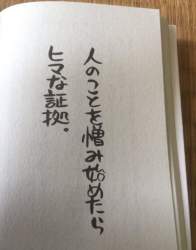 人のことを憎み始めたら
ヒマな証拠。